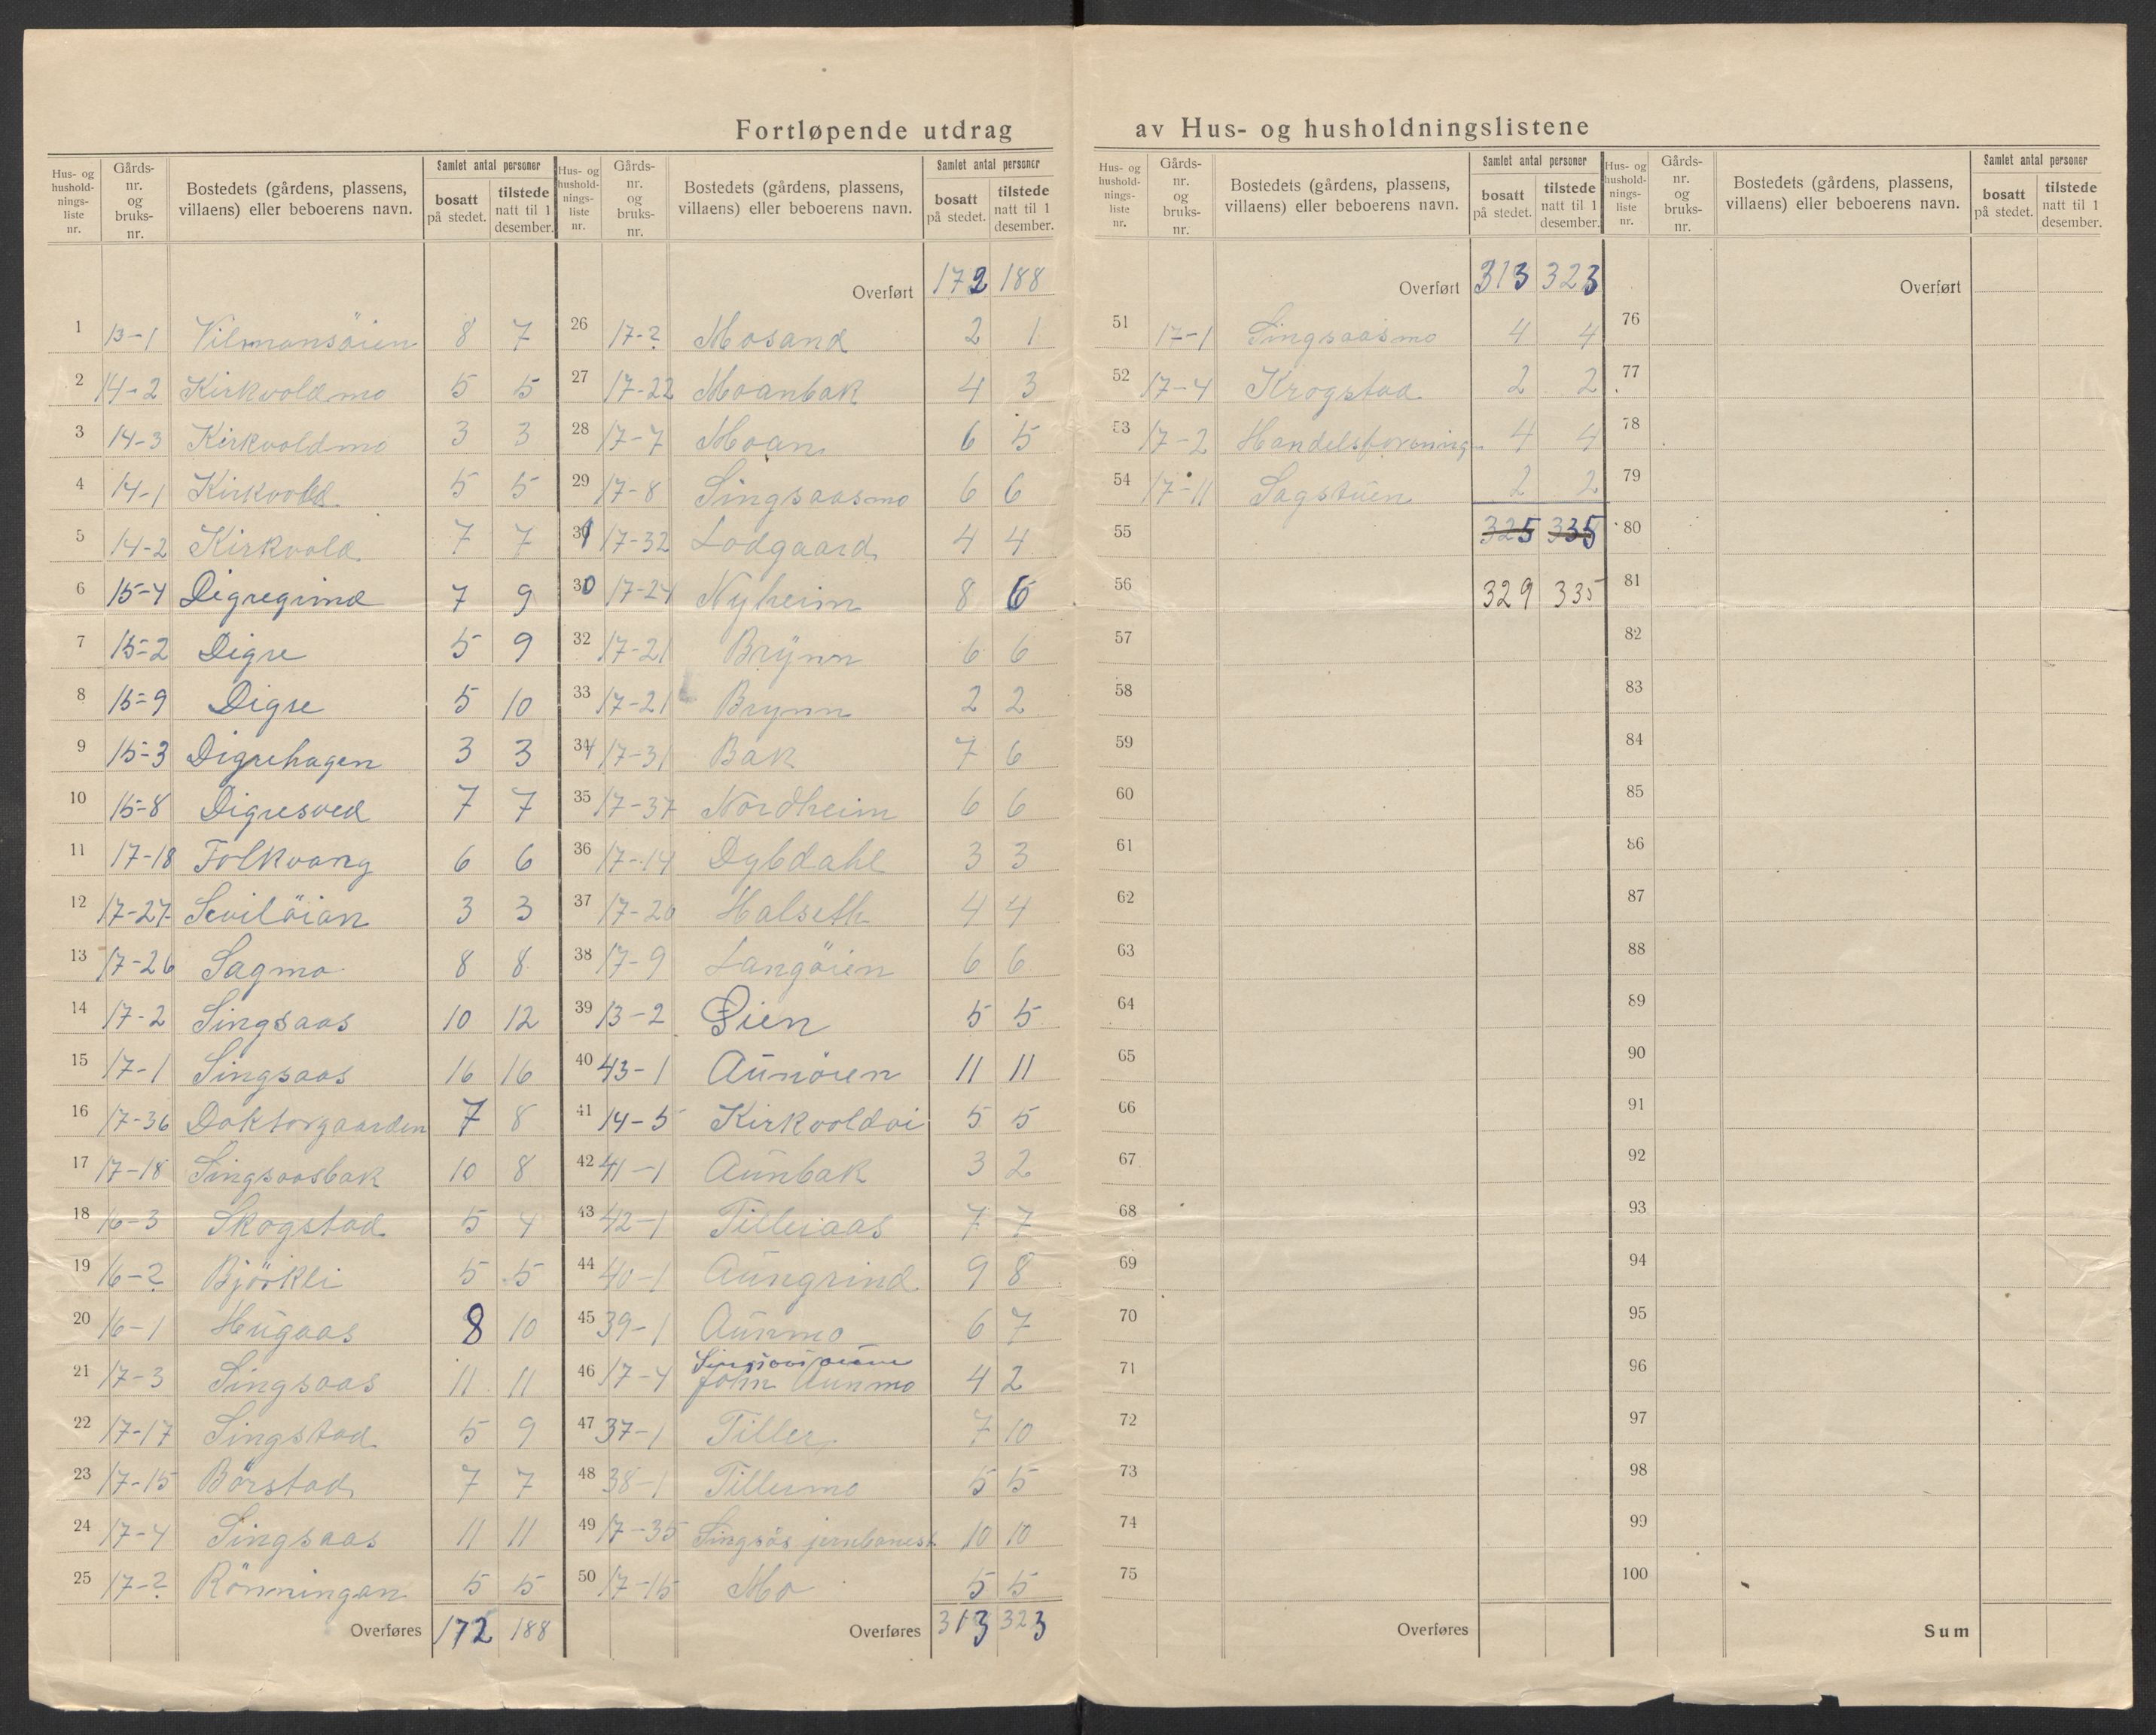 Fortløpende utdrag av Hus- og husholdningslistene
Hus- og hushold-nings-liste nr. Gårds-nr. og bruks-nr. Bostedets (gårdens, plassens, villaens) eller beboerens navn. Samlet antal personer bosatt på stedet. tilstede natt til 1 desember.
1 13-1 Vilmansöien 8 7
2 14-2 Kirkvoldmo 5 5
3 14-3 Kirkvoldmo 3 3
4 14-1 Kirkvold 5 5
5 14-2 Kirkvold 7 7
6 15-4 Digregrind 7 9
7 15-2 Digre 5 9
8 15-9 Digre 5 10
9 15-3 Digrehagen 3 3
10 15-8 Digresved 7 7
11 17-18 Folkvang 6 6
12 17-27 Sviløian 3 3
13 17-26 Sagmo 8 8
14 17-2 Singsaas 10 12
15 17-1 Singsaas 16 16
16 17-36 Doktorgaarden 7 8
17 17-18 Singsaasbak 10 8
18 16-3 Skogstad 5 4
19 16-2 Björkli 5 5
20 16-1 Hugaas 8 10
21 17-3 Singsaas 11 11
22 17-17 Singstad 5 9
23 17-15 Börstad 7 7
24 17-4 Singsaas 11 11
25 17-2 Rönningan 5 5
Overføres 172 188
Hus- og hushold-nings-liste nr. Gårds-nr. og bruks-nr. Bostedets (gårdens, plassens, villaens) eller beboerens navn. Samlet antal personer bosatt på stedet. tilstede natt til 1 desember.
Overført 172 188
26 17-2 Mosand 2 1
27 17-22 Moanbak 4 3
28 17-7 Moan 6 5
29 17-8 Singsaasmo 6 6
31 17-32 Lodgaard 4 4
30 17-24 Nyheim 8 6
32 17-21 Brynn 6 6
33 17-21 Brynn 2 2
34 17-31 Bak 7 6
35 17-37 Nordheim 6 6
36 17-14 Dybdahl 3 3
37 17-20 Halseth 4 4
38 17-9 Langöien 6 6
39 13-2 Øien 5 5
40 43-1 Aunöien 11 11
41 14-5 Kirkvoldøi 5 5
42 41-1 Aunbak 3 2
43 42-1 Tilleraas 7 7
44 40-1 Aungrind 9 8
45 39-1 Aunmo 6 7
46 17-4 John Aunmo 4 2
47 37-1 Tiller 7 10
48 38-1 Tillermo 5 5
49 17-35 Singsås jernbanest 10 10
50 17-15 Mo 5 5
Overføres 313 323
Hus- og hushold-nings-liste nr. Gårds-nr. og bruks-nr. Bostedets (gårdens, plassens, villaens) eller beboerens navn. Samlet antal personer bosatt på stedet. tilstede natt til 1 desember.
Overført 313 323
51 17-1 Singsaasmo 4 4
52 17-4 Krogstad 2 2
53 17-2 Handelsforening 4 4
54 17-11 Sagstuen 2 2
55 325 335
56 329 335
57
58
59
60
61
62
63
64
65
66
67
68
69
70
71
72
73
74
75
Overføres
Hus- og hushold-nings-liste nr. Gårds-nr. og bruks-nr. Bostedets (gårdens, plassens, villaens) eller beboerens navn. Samlet antal personer bosatt på stedet. tilstede natt til 1 desember.
Overført
76
77
78
79
80
81
82
83
84
85
86
87
88
89
90
91
92
93
94
95
96
97
98
99
100
Sum